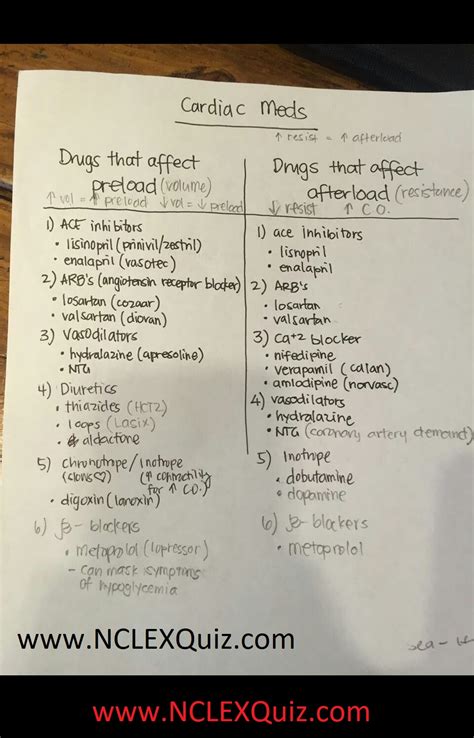 Cardiac Meds
↑ resist = ↑ afterload
Drugs that affect
preload (volume)
↑ vol = ↑ preload ↓ vol = ↓ preload
1) ACE inhibitors
• lisinopril (prinivil/zestril)
• enalapril (vasotec)
2) ARB's (angiotensin receptor blocker)
• losartan (cozaar)
• valsartan (diovan)
3) Vasodilators
• hydralazine (apresoline)
• NTG
4) Diuretics
• thiazides (HCTZ)
• loops (Lasix)
• aldactone
5) Chronotrope/Inotrope
(slows ♡) (↑ contractility
for ↑ C.O.)
• digoxin (lanoxin)
6) β-blockers
• metoprolol (lopressor)
- can mask symptoms
of hypoglycemia
Drugs that affect
afterload (resistance)
↓ resist ↑ C.O.
1) ace inhibitors
• lisnopril
• enalapril
2) ARB's
• losartan
• valsartan
3) Ca+2 blocker
• nifedipine
• verapamil (calan)
• amlodipine (norvasc)
4) vasodilators
• hydralazine
• NTG (coronary artery demand)
5) Inotrope
• dobutamine
• dopamine
6) β-blockers
• metoprolol
www.NCLEXQuiz.com
www.NCLEXQuiz.com